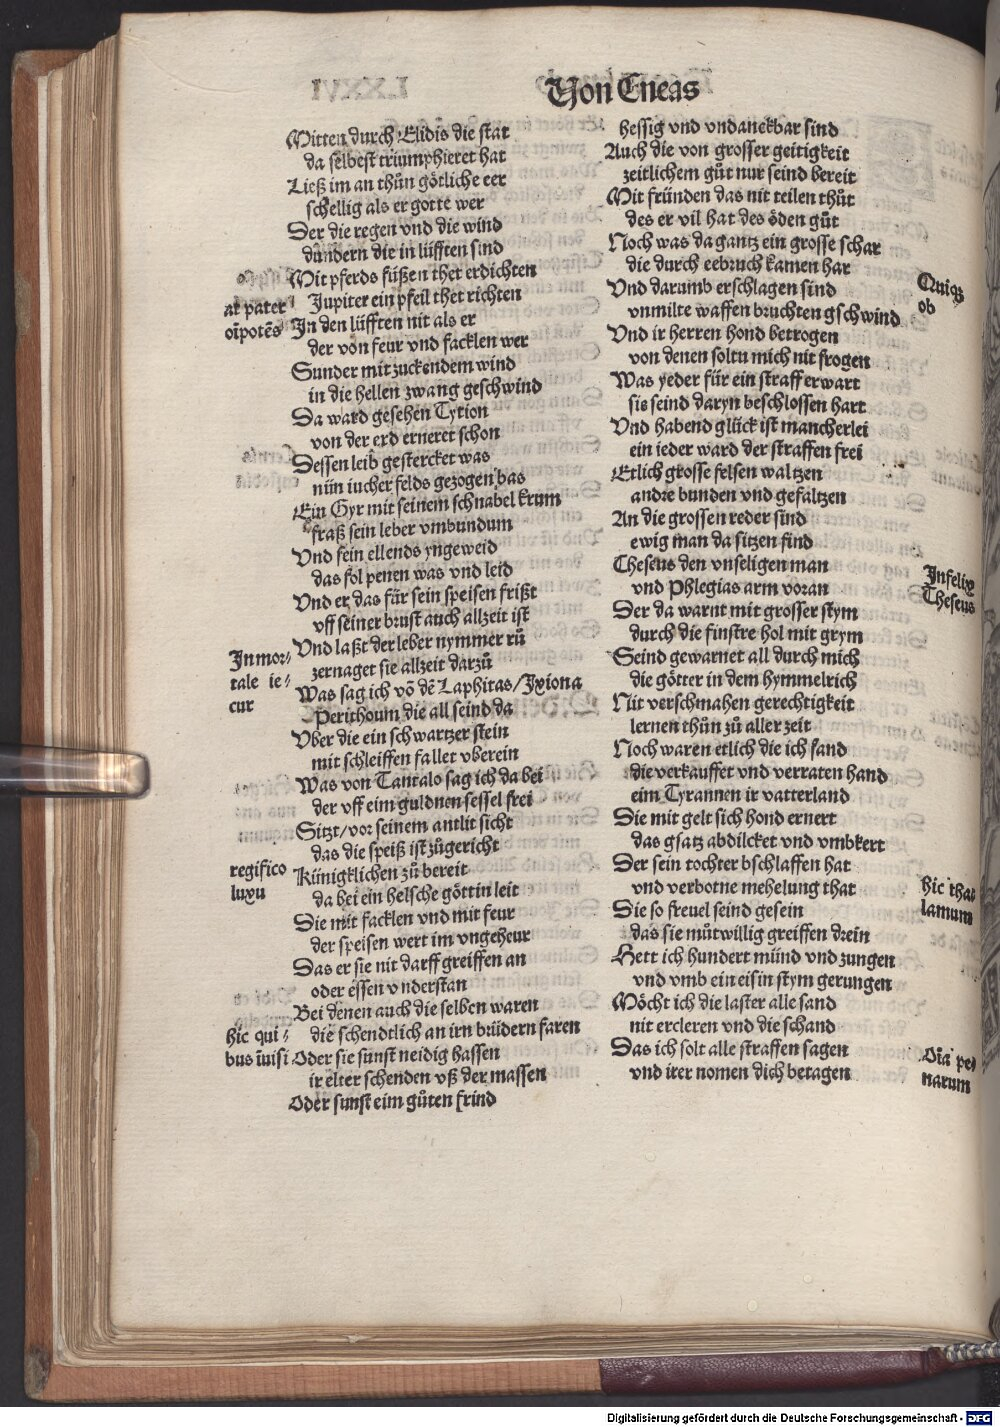 Von Eneas
Mitten durch Elidis die stat
da selbest triumphieret hat
Ließ im an thůn götliche eer
schellig als er gotte wer
Der die regen vnd die wind
dundern die in lüfften sind
Mit pferds füßen thet erdichten
at pater
Jupiter ein pfeil thet richten
oīpotēs
In den lüfften nit als er
der von feur vnd facklen wer
Sunder mit zuckendem wind
in die hellen zwang geschwind
Da ward gesehen Tytion
von der erd erneret schon
Dessen leib gestercket was
nün iucher felds gezogen bas
Ein Gyr mit seinem schnabel krum
fraß sein leber vmbundum
Vnd sein ellends yngeweid
das fol penen was vnd leid
Vnd er das für sein speisen frißt
vff seiner brust auch allzeit ist
Vnd laßt der leber nymmer rů
Inmor⸗
tale ie⸗
cur
zernaget sie allzeit darzů
Was sag ich vō dē Laphitas/Ixiona
Perithoum die all seind da
Vber die ein schwartzer stein
mit schleiffen fallet vberein
Was von Tantalo sag ich da bei
der vff eim guldnen sessel frei
Sitzt/vor seinem antlit sicht
das die speiß ist zůgericht
regifico
luxu
Künigklichen zů bereit
da bei ein helsche göttin leit
Die mit facklen vnd mit feur
der speisen wert im vngeheur
Das er sie nit darff greiffen an
oder essen vnderstan
Bei denen auch die selben waren
hic qui⸗
bus īuisi
die schendtlich an irn brüdern faren
Oder sie sunst neidig hassen
ir elter schenden vß der massen
Oder sunst eim gůten frind
hessig vnd vndanckbar sind
Auch die von grosser geitigkeit
zeitlichem gůt nur seind bereit
Mit fründen das nit teilen thůt
des er vil hat des öden gůt
Noch was da gantz ein grosse schar
die durch eebruch kamen har
Vnd darumb erschlagen sind
Quiqȝ
ob
vnmilte waffen bruchten gschwind
Vnd ir herren hond betrogen
von denen soltu mich nit frogen
Was yeder für ein straff erwart
sie seind daryn beschlossen hart
Vnd habend glück ist mancherlei
ein ieder ward der straffen frei
Etlich grosse felsen waltzen
andre bunden vnd gefaltzen
An die grossen reder sind
ewig man da sitzen find
Theseus den vnseligen man
Infelix
Theseus
vnd Phlegias arm voran
Der da warnt mit grosser stym
durch die finstre hol mit grym
Seind gewarnet all durch mich
die götter in dem hymmelrich
Nit verschmahen gerechtigkeit
lernen thůn zů aller zeit
Noch waren etlich die ich fand
die verkauffet vnd verraten hand
eim Tyrannen ir vatterland
Die mit gelt sich hond ernert
das gsatz abdilcket vnd vmbkert
Der sein tochter bschlaffen hat
hic tha⸗
lamum
vnd verbotne mehelung that
Die so freuel seind gesein
das sie můtwillig greiffen drein
Hett ich hundert münd vnd zungen
vnd vmb ein eisin stym gerungen
Möcht ich die laster alle sand
nit ercleren vnd die schand
Das ich solt alle straffen sagen
Oīa pe⸗
narum
vnd irer nomen dich betagen
Digitalisierung gefördert durch die Deutsche Forschungsgemeinschaft - DFG